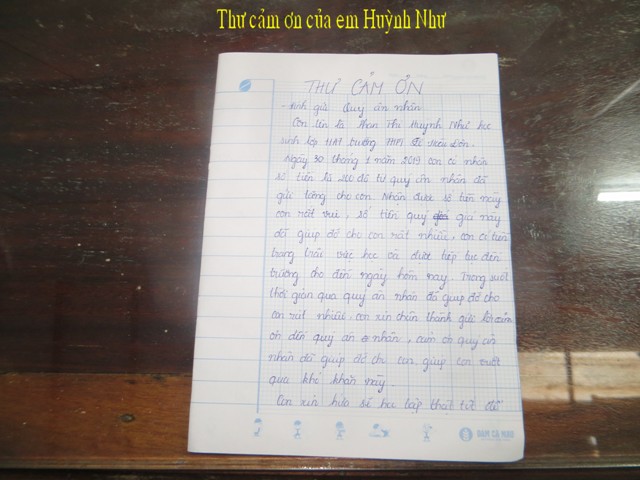 Thư cảm ơn của em Huỳnh Như
THƯ CẢM ƠN
- Kính gửi Quý ân nhân
Con tên là Phan Thị Huỳnh Như học
sinh lớp trường THPT
Ngày 30 tháng 1 năm 2019 con có nhận
số tiền là 200 đô từ quý ân nhân đã
gửi tặng cho con. Nhận được số tiền này
con rất vui, số tiền quý giá này
đã giúp đỡ cho con rất nhiều, con có tiền
trang trải việc học và được tiếp tục đến
trường cho đến ngày hôm nay. Trong suốt
thời gian qua quý ân nhân đã giúp đỡ cho
con rất nhiều, con xin chân thành gửi lời cảm
ơn đến quý ân nhân, cảm ơn quý ân
nhân đã giúp đỡ cho con, giúp con vượt
qua khó khăn này.
Con xin hứa sẽ học tập thật tốt để
DAM CA MAU